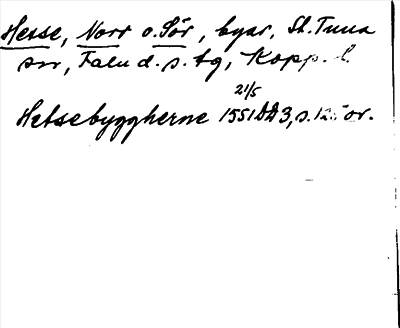 Hesse, Norr o. Sör, byar, St. Tuna
sn, Falu d. s. tg, Kopp. l.
21/5
Hetsebyggherne 1551 DD 3, s. 125 or.